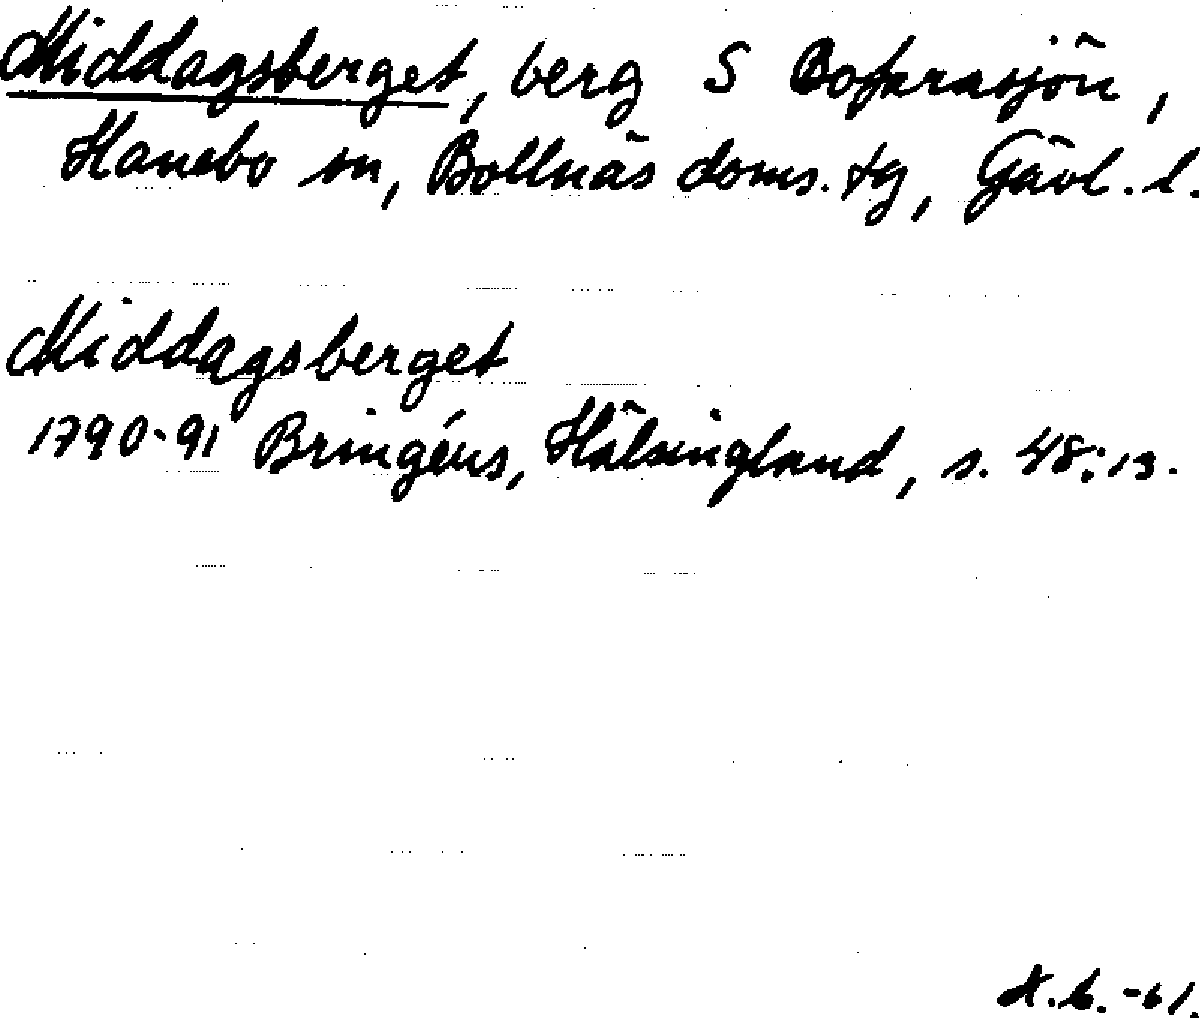 Middagsberget, berg S Bofarasjön,
Hanebo sn, Bollnäs doms. tg, Gävl. l.
Middagsberget
1790-91 Bringéus, Hälsingland, s. 48:13.
-61.